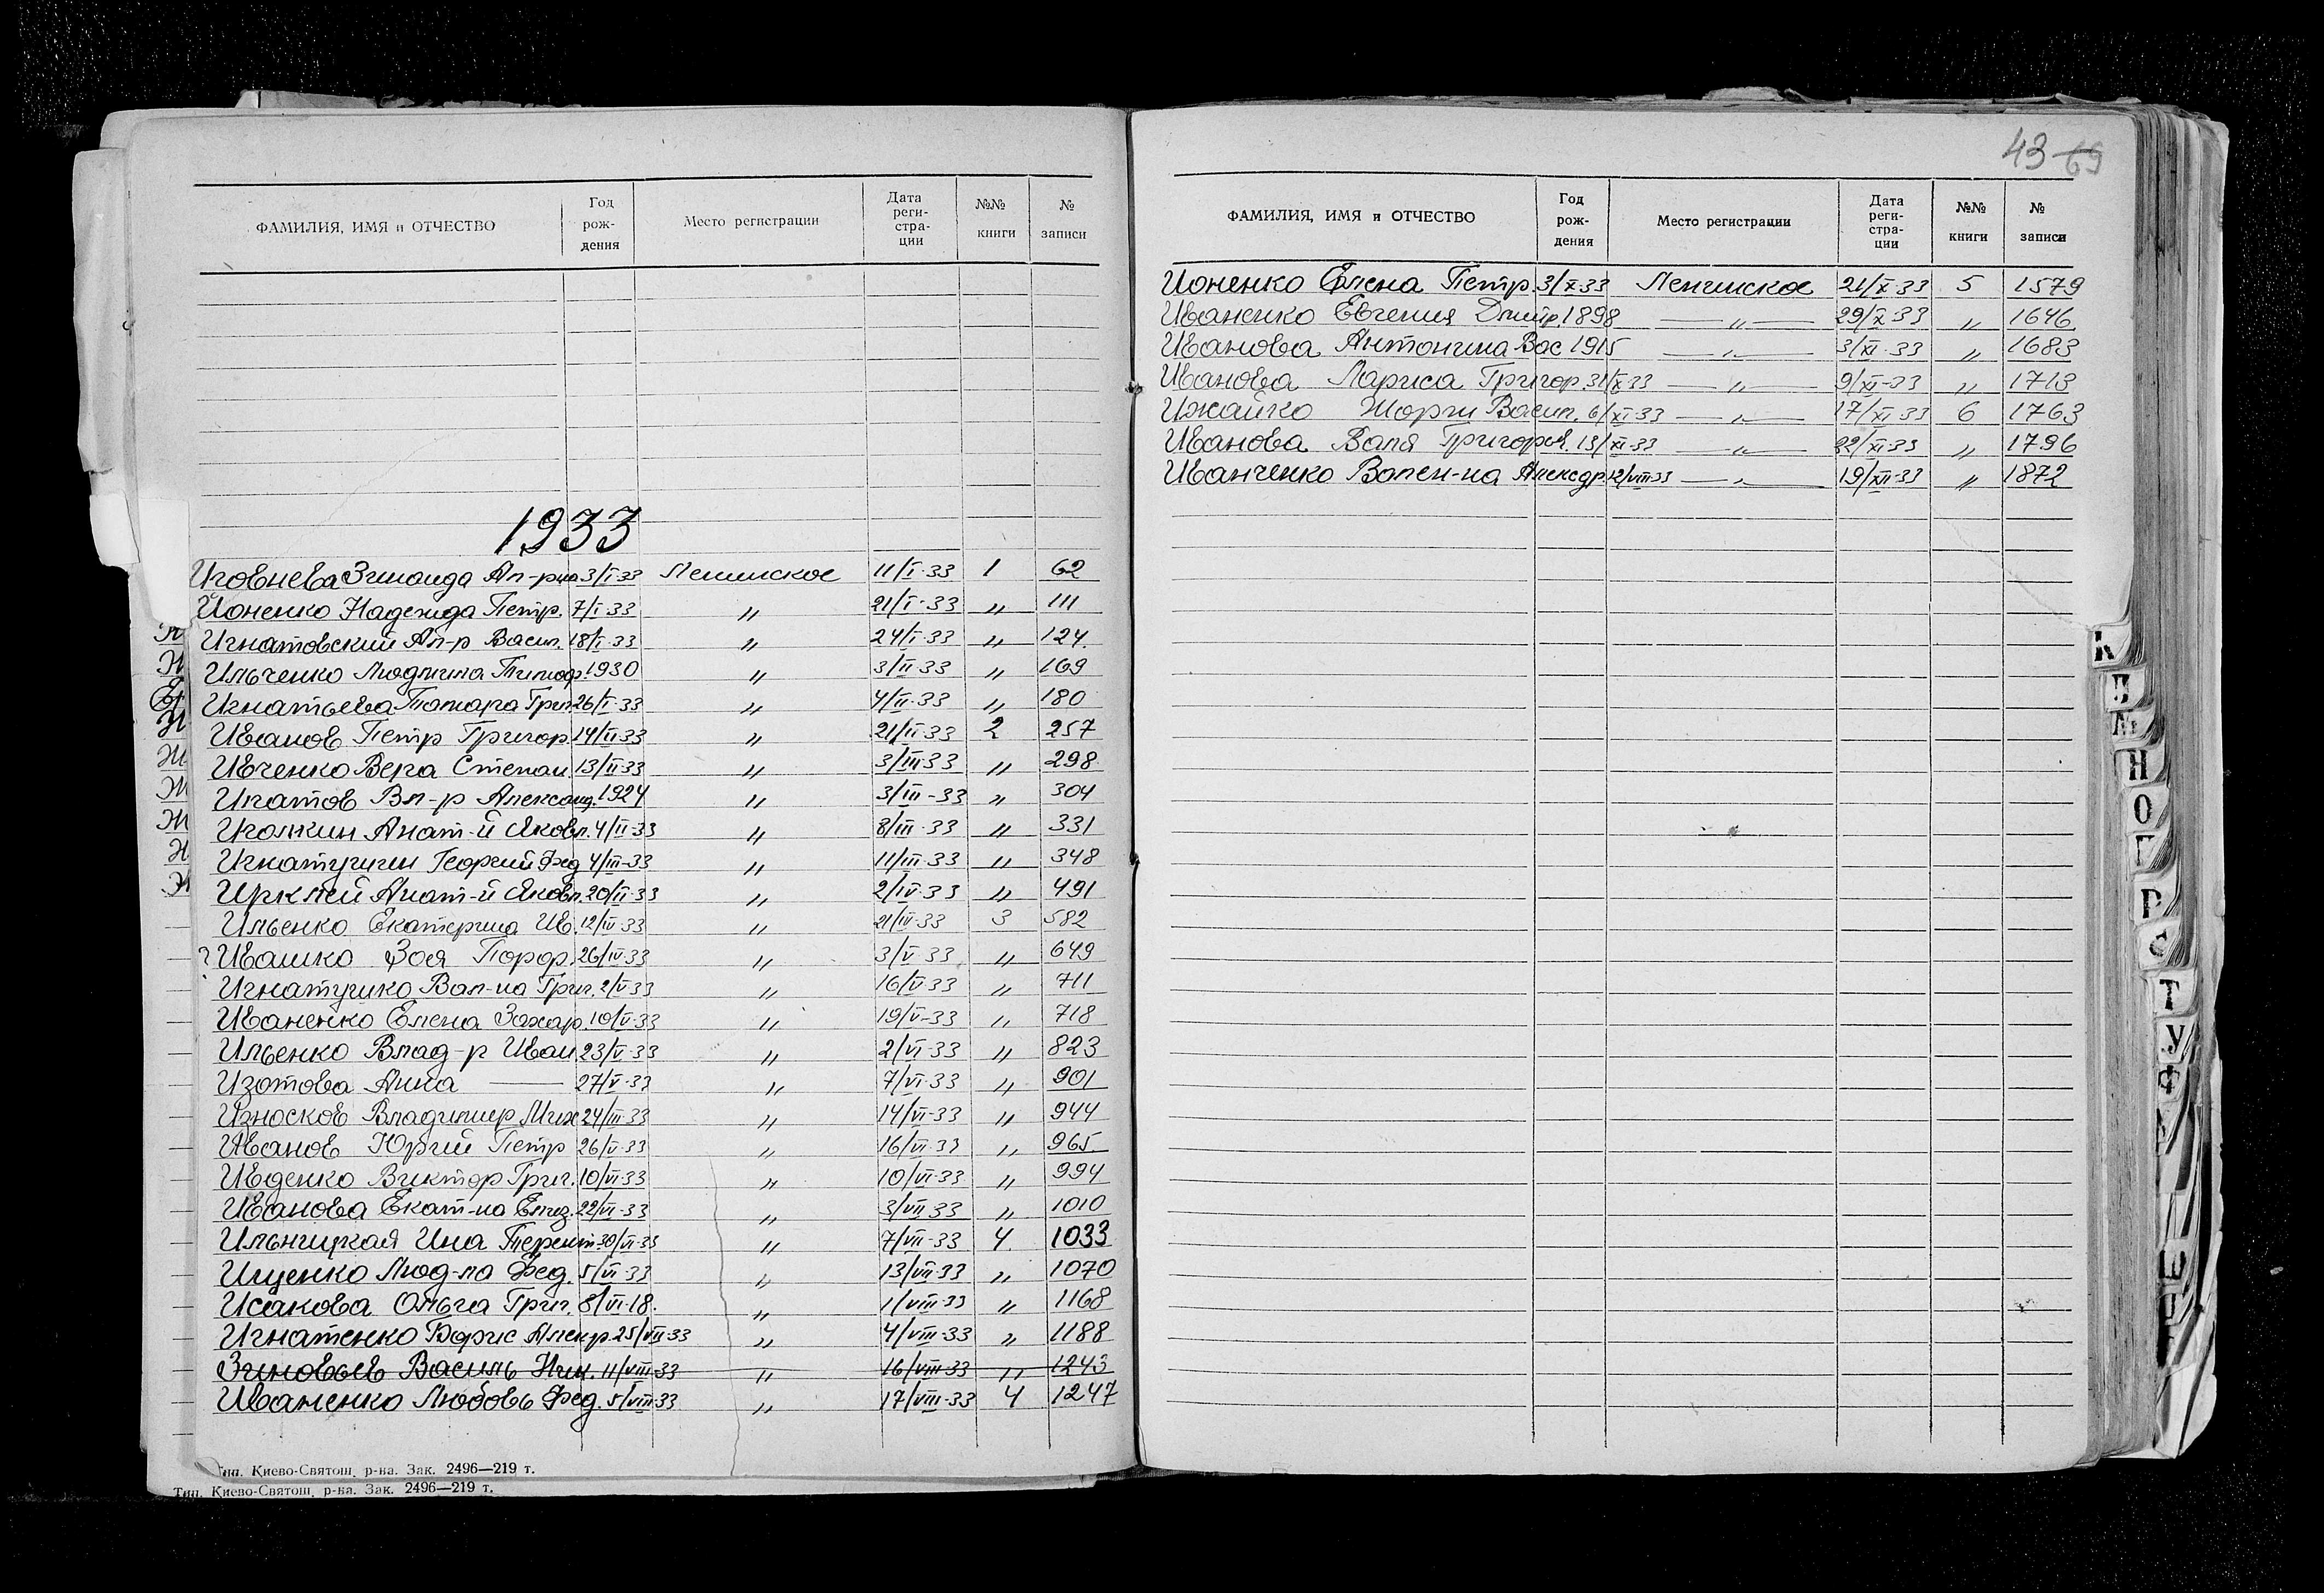 43 69
ФАМИЛИЯ, ИМЯ и ОТЧЕСТВО Год рож- дения Место регистрации Дата реги- стра- ции №№ книги № записи
1933
Иговнева Зинаида Ал-рна 3/I 33 Ленинское 11/I-33 1 62
Ионенко Надежда Петр. 7/I-33 " 21/I-33 " 111
Игнатовский Ал-р Васил. 18/I-33 " 24/I-33 " 124.
Ильченко Людмила Тимоф. 1930 " 3/II-33 " 169
Игнатьева Тамара Григ. 26/I-33 " 4/II-33 " 180
Иванов Петр Григор 14/II 33 " 21/II-33 2 257
Ивченко Вера Степан 13/II 33 " 3/III 33 " 298
Игатов Вл-р Александ. 1924 " 3/III-33 " 304
Иголкин Анат-й Яковл. 4/II-33 " 8/III-33 " 331
Игнатушин Георгий Фед 4/III-33 " 11/III-33 " 348
Ирклей Анат-й Яковл. 20/II-33 " 2/IV-33 " 491
Ильенко Екатерина Ив. 12/IV 33 " 21/IV-33 3 582
? Ивашко Зоя 26/IV-33 " 3/V-33 " 649
Вал-на Григ. 2/V-33 " 16/V-33 " 711
Иваненко Елена Захар. 10/V-33 " 19/V-33 " 718
Ильенко Влад-р Иван 23/V-33 " 2/VI-33 " 823
Изотова Анна — 27/V-33 " 7/VI-33 " 901
Износков Владимир Мих 24/III-33 " 14/VI-33 " 944
Иванов Юрий Петр 26/V-33 " 16/VI-33 " 965.
Ивденко Виктор Григ. 10/VI-33 " 10/VI-33 " 994
Иванова Екат-на Елиз. 22/VI-33 " 3/VII 33 " 1010
Ильницкая Ина Терент 30/VI-33 " 7/VII-33 4. 1033
Ищенко Люд-ла Фед. 5/VI-33 " 13/VII-33 " 1070
Исакова Ольга Григ. 8/VI-18. " 1/VIII-33 " 1168
Игнатенко Борис Алекр. 25/VII-33 " 4/VIII-33 " 1188
Зиновьев Василь Ник. 11/VIII-33 " 16/VIII-33 " 1243
Иваненко Любовь Фед. 5/VIII-33 " 17/VIII-33 4 1247
Тип. Киево-Святош. р-на. Зак. 2496—219 т.
Тип. Киево-Святош. р-на. Зак. 2496—219 т.
ФАМИЛИЯ, ИМЯ и ОТЧЕСТВО Год рож- дения Место регистрации Дата реги- стра- ции №№ книги № записи
Ионенко Елена Петр. 3/X-33 Ленинское 21/X-33 5 1579
Иваненко Евгения Дмитр. 1898 — " — 29/X 33 " 1646
Иванова Антонина Вас 1915 — " — 3/XI-33 " 1683
Иванова Лариса Григор. 31/X 33 — " — 9/XI-33 " 1713
Ижайко Жорж Васил. 6/XI-33 — " — 17/XI 33 6 1763
Иванова Валя Григорьев. 13/XI-33 — " — 22/XI-33 " 1796
Иванченко Вален-на Алексдр. 12/VIII-33 — " — 19/XII-33 " 1872
К
Л
М
Н
О
П
Р
С
Т
У
Ф
Ш